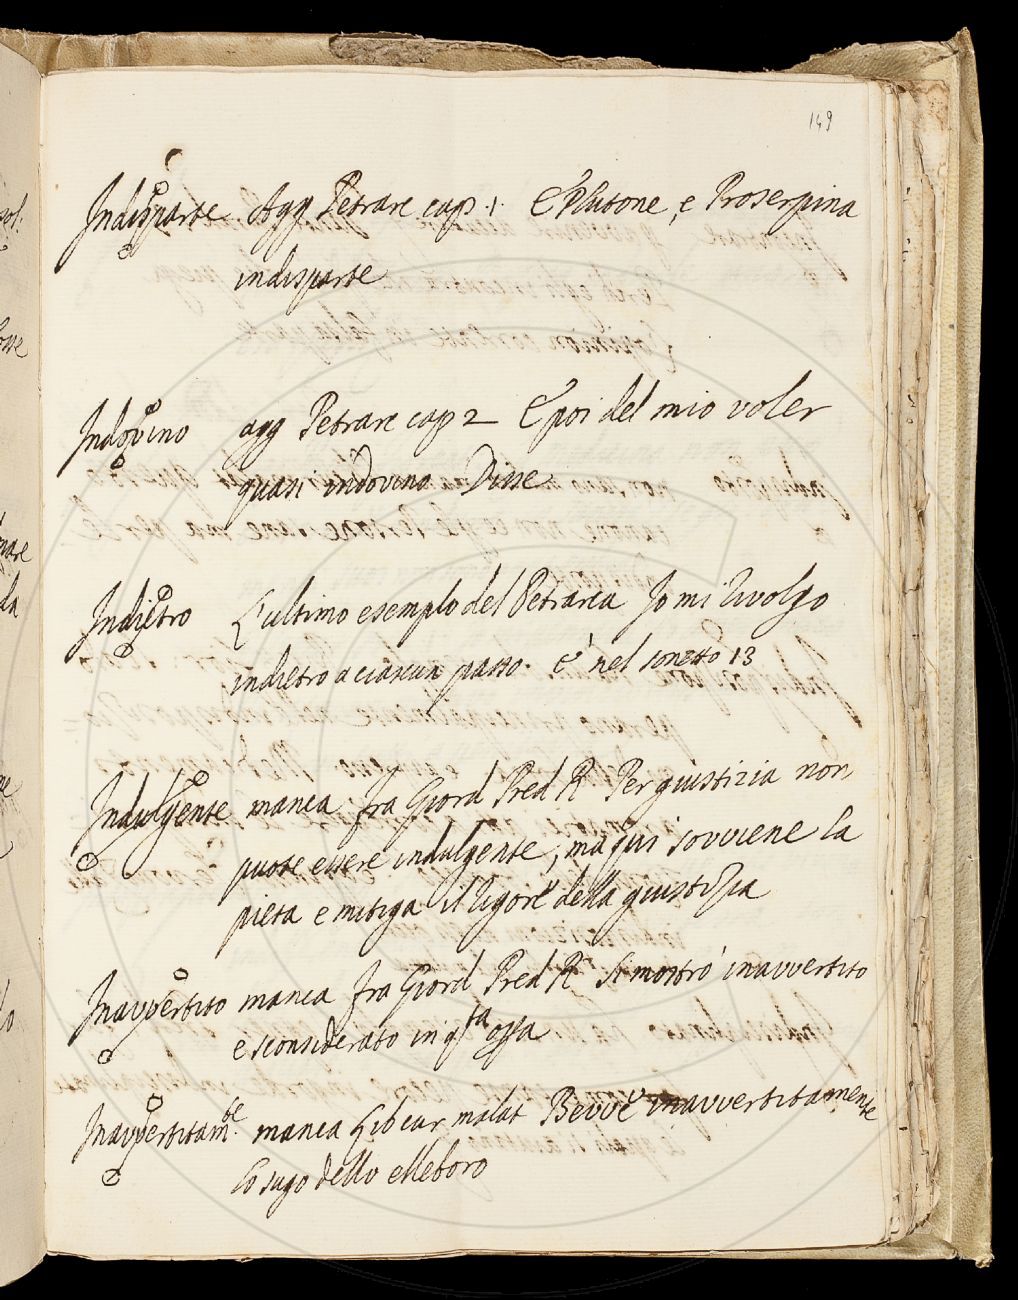 149
Indisparte Agg Petrarc cap. 1. E Plutone, e Proserpina
indisparte
Indovino agg Petrarc cap 2 E poi del mio voler
quasi indovino Disse
Indietro L'ultimo esemplo del Petrarca Io mi rivolgo
indietro a ciascun passo. è nel sonetto 13
Indulgente manca fra Giord Pred R Per giustizia non
puote essere indulgente, ma qui sovviene la
pieta e mitiga il rigore della giustizia
Inavvertito manca fra Giord Pred R Si mostrò inavvertito
e sconsiderato in qsta
Inavvertitamte manca Lib cur malat Bevve inavvertitamente
lo sugo dello elleboro